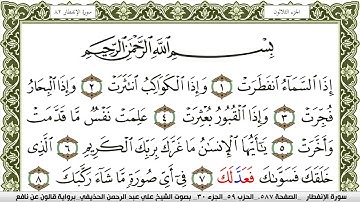 الجزء الثلاثون
سورة الإنفطار ٨٢
بِسْمِ ٱللَّهِ ٱلرَّحْمَٰنِ ٱلرَّحِيمِ
إِذَا ٱلسَّمَآءُ ٱنفَطَرَتْ ١ وَإِذَا ٱلْكَوَاكِبُ ٱنتَثَرَتْ ٢ وَإِذَا ٱلْبِحَارُ
فُجِّرَتْ ٣ وَإِذَا ٱلْقُبُورُ بُعْثِرَتْ ٤ عَلِمَتْ نَفْسٌ مَّا قَدَّمَتْ
وَأَخَّرَتْ ٥ يَٰٓأَيُّهَا ٱلْإِنسَٰنُ مَا غَرَّكَ بِرَبِّكَ ٱلْكَرِيمِ ٦ ٱلَّذِى
خَلَقَكَ فَسَوَّىٰكَ فَعَدَّلَكَ ٧ فِىٓ أَىِّ صُورَةٍ مَّا شَآءَ رَكَّبَكَ ٨
سورة الإنفطار . الصفحة ٥٨٧ . الحزب ٥٩ . الجزء ٣٠ . بصوت الشيخ علي عبد الرحمن الحذيفي . برواية قالون عن نافع